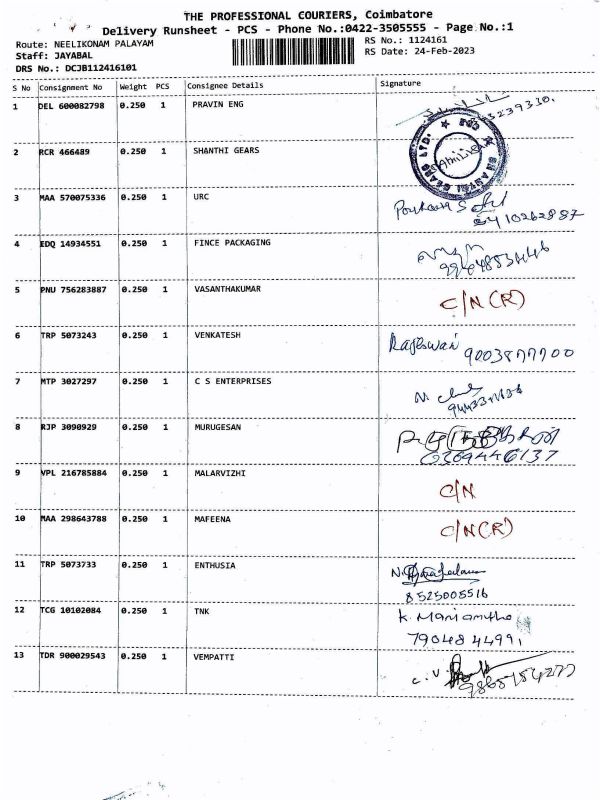 THE PROFESSIONAL COURIERS, Coimbatore
Delivery Runsheet - PCS - Phone No.:0422-3505555 - Page No.:1
Route: NEELIKONAM PALAYAM RS No.: 1124161
Staff: JAYABAL RS Date: 24-Feb-2023
DRS No.: DCJB112416101
S No Consignment No Weight PCS Consignee Details Signature
1 DEL 600082798 0.250 1 PRAVIN ENG
2 RCR 466489 0.250 1 SHANTHI GEARS
3 MAA 570075336 0.250 1 URC
4 EDQ 14934551 0.250 1 FINCE PACKAGING
5 PNU 756283887 0.250 1 VASANTHAKUMAR C/N (R)
6 TRP 5073243 0.250 1 VENKATESH Rajeswari 9003877700
7 MTP 3027297 0.250 1 C S ENTERPRISES
8 RJP 3090929 0.250 1 MURUGESAN
9 VPL 216785884 0.250 1 MALARVIZHI C/N
10 MAA 298643788 0.250 1 MAFEENA C/N (R)
11 TRP 5073733 0.250 1 ENTHUSIA
8525005516
12 TCG 10102084 0.250 1 TNK K. Mariamutho
79048 44991
13 TDR 900029543 0.250 1 VEMPATTI